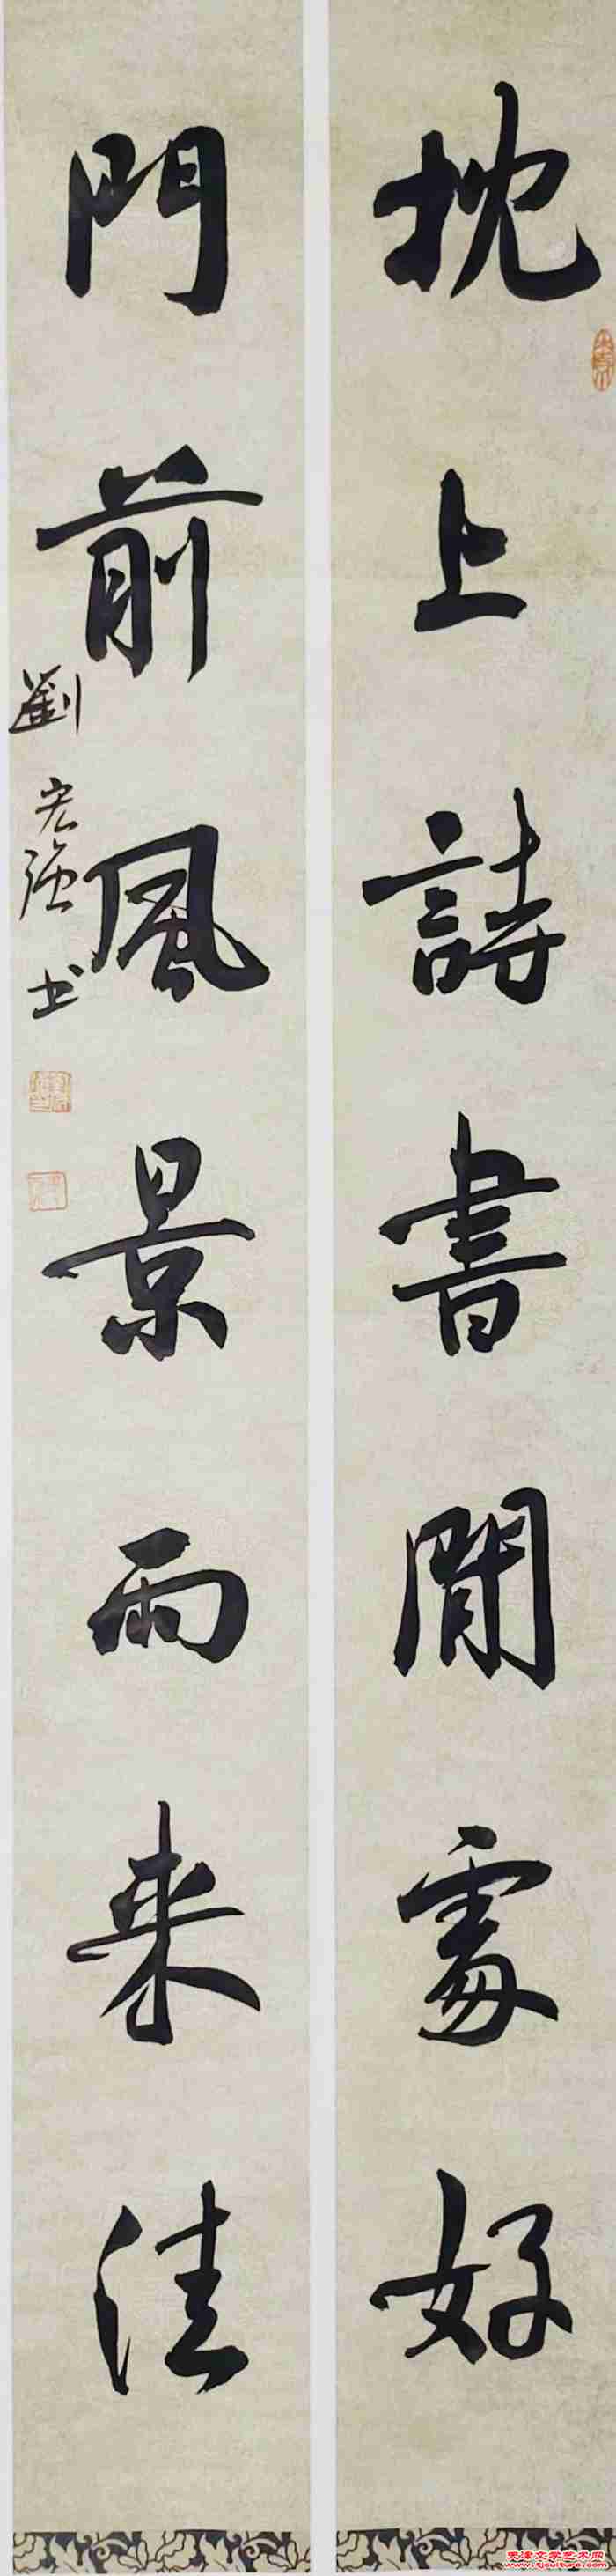 枕上詩書閒處好
門前風景雨来佳
劉宏强书
天津文学艺术网
www.tjculture.com